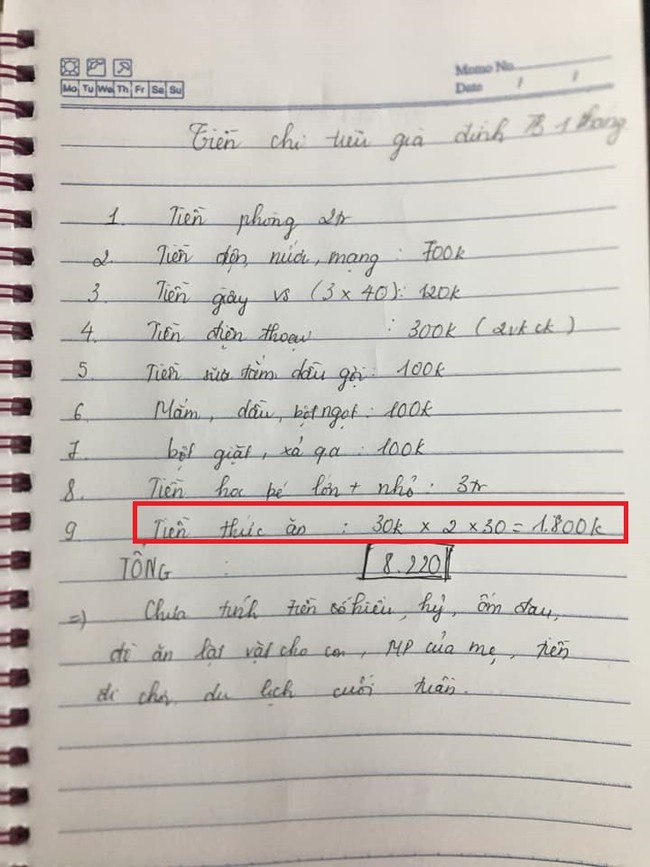 Memo No.
Mo Tu We Th Fr Sa Su
Date / /
Tiền chi tiêu gia đình TB 1 tháng
1. Tiền phòng 2tr
2. Tiền điện, nước, mạng : 700k
3 Tiền giấy vs (3 x 40): 120k
4. Tiền điện thoại : 300k (2vk ck)
5. Tiền sữa tắm, dầu gội : 100k
6. Mắm, dầu, bột ngọt : 100k
7. bột giặt, xả q.a : 100k
8. Tiền học bé lớn + nhỏ : 3tr
9 Tiền thức ăn : 30k x 2 x 30 = 1.800k
TỔNG : 8.220
=) Chưa tính tiền có hiếu, hỷ, ốm đau,
đi ăn lặt vặt cho con, MP của mẹ, tiền
đi chơi, du lịch cuối tuần.